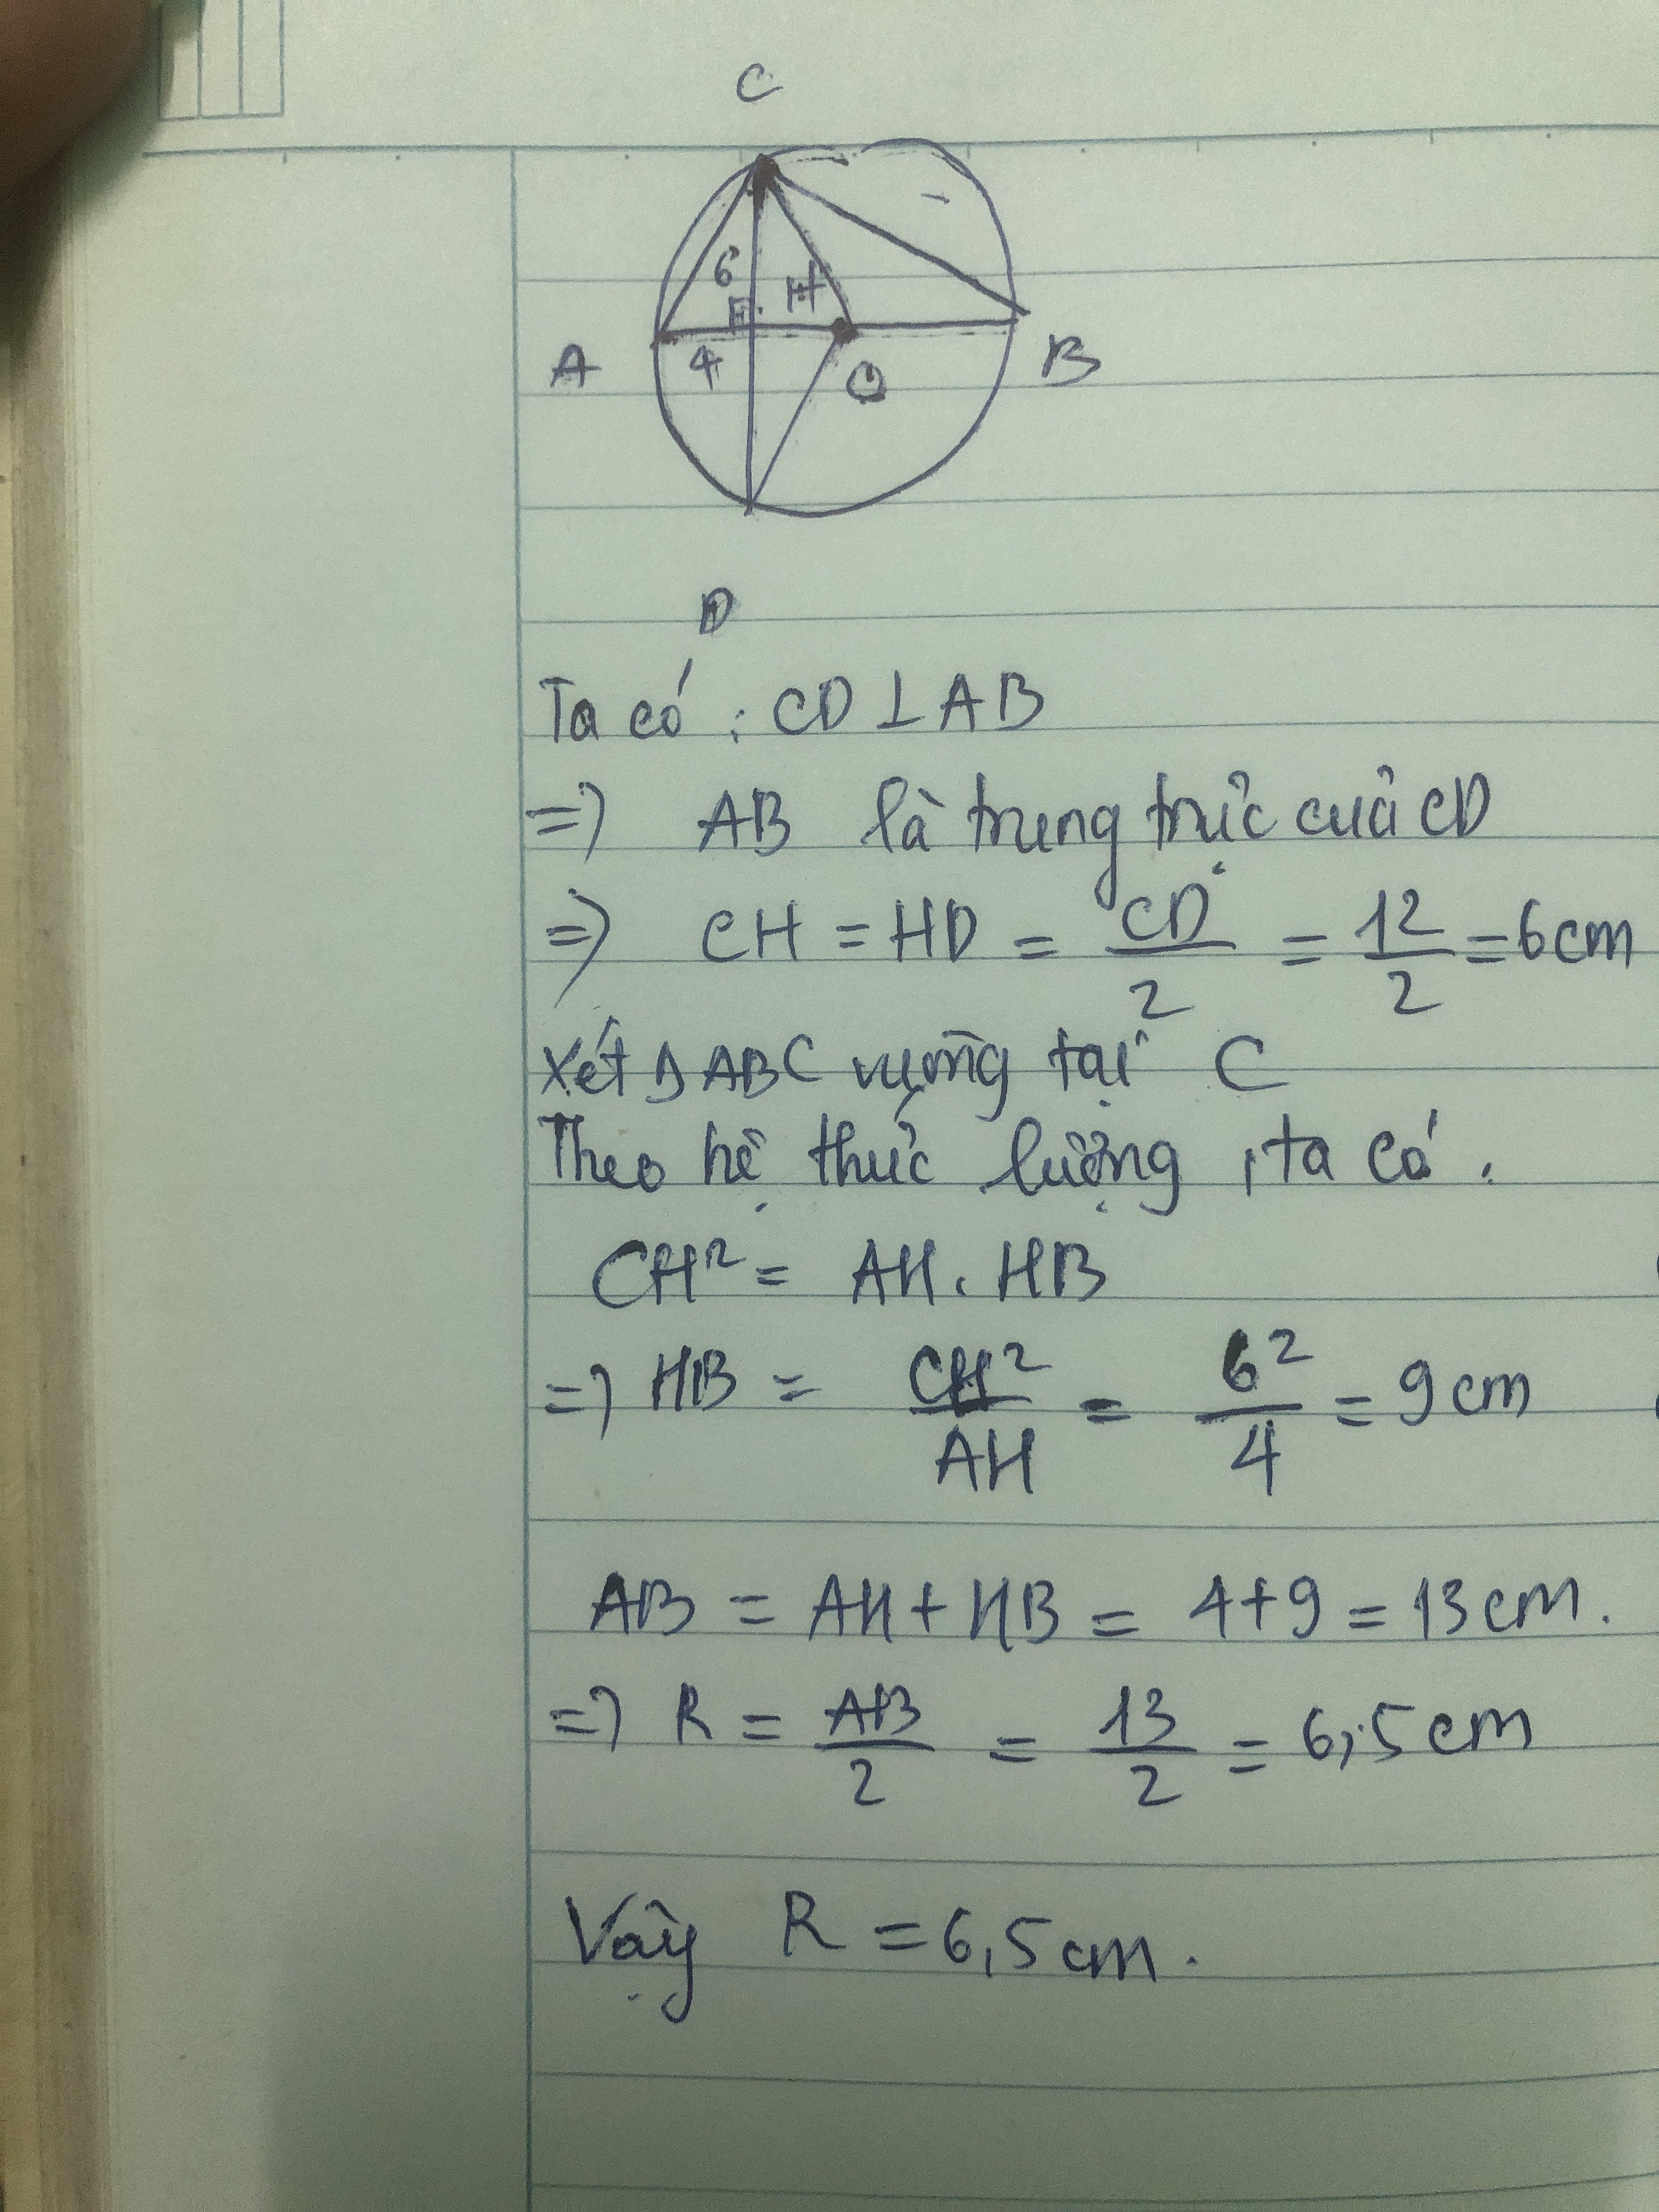 C
6
H
A
4
O
B
D
Ta có : CD ⊥ AB
=> AB là trung trực của CD
=> CH = HD = CD/2 = 12/2 = 6cm
Xét Δ ABC vuông tại C
Theo hệ thức lượng, ta có:
CH² = AH . HB
=> HB = CH²/AH = 6²/4 = 9cm
AB = AH + HB = 4+9 = 13cm.
=> R = AB/2 = 13/2 = 6,5cm
Vậy R = 6,5cm.